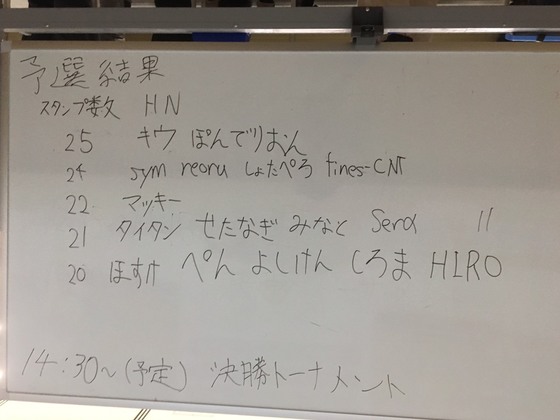 予選結果
スタンプ数 HN
25 キウ ぽんでりおん
24 sym reoru しょたぺろ fines-CNT
22 マッキー
21 タイタン せたなぎ みなと Serα 11
20 ほすけ ぺん よしけん しろま HIRO
14:30~(予定) 決勝トーナメント